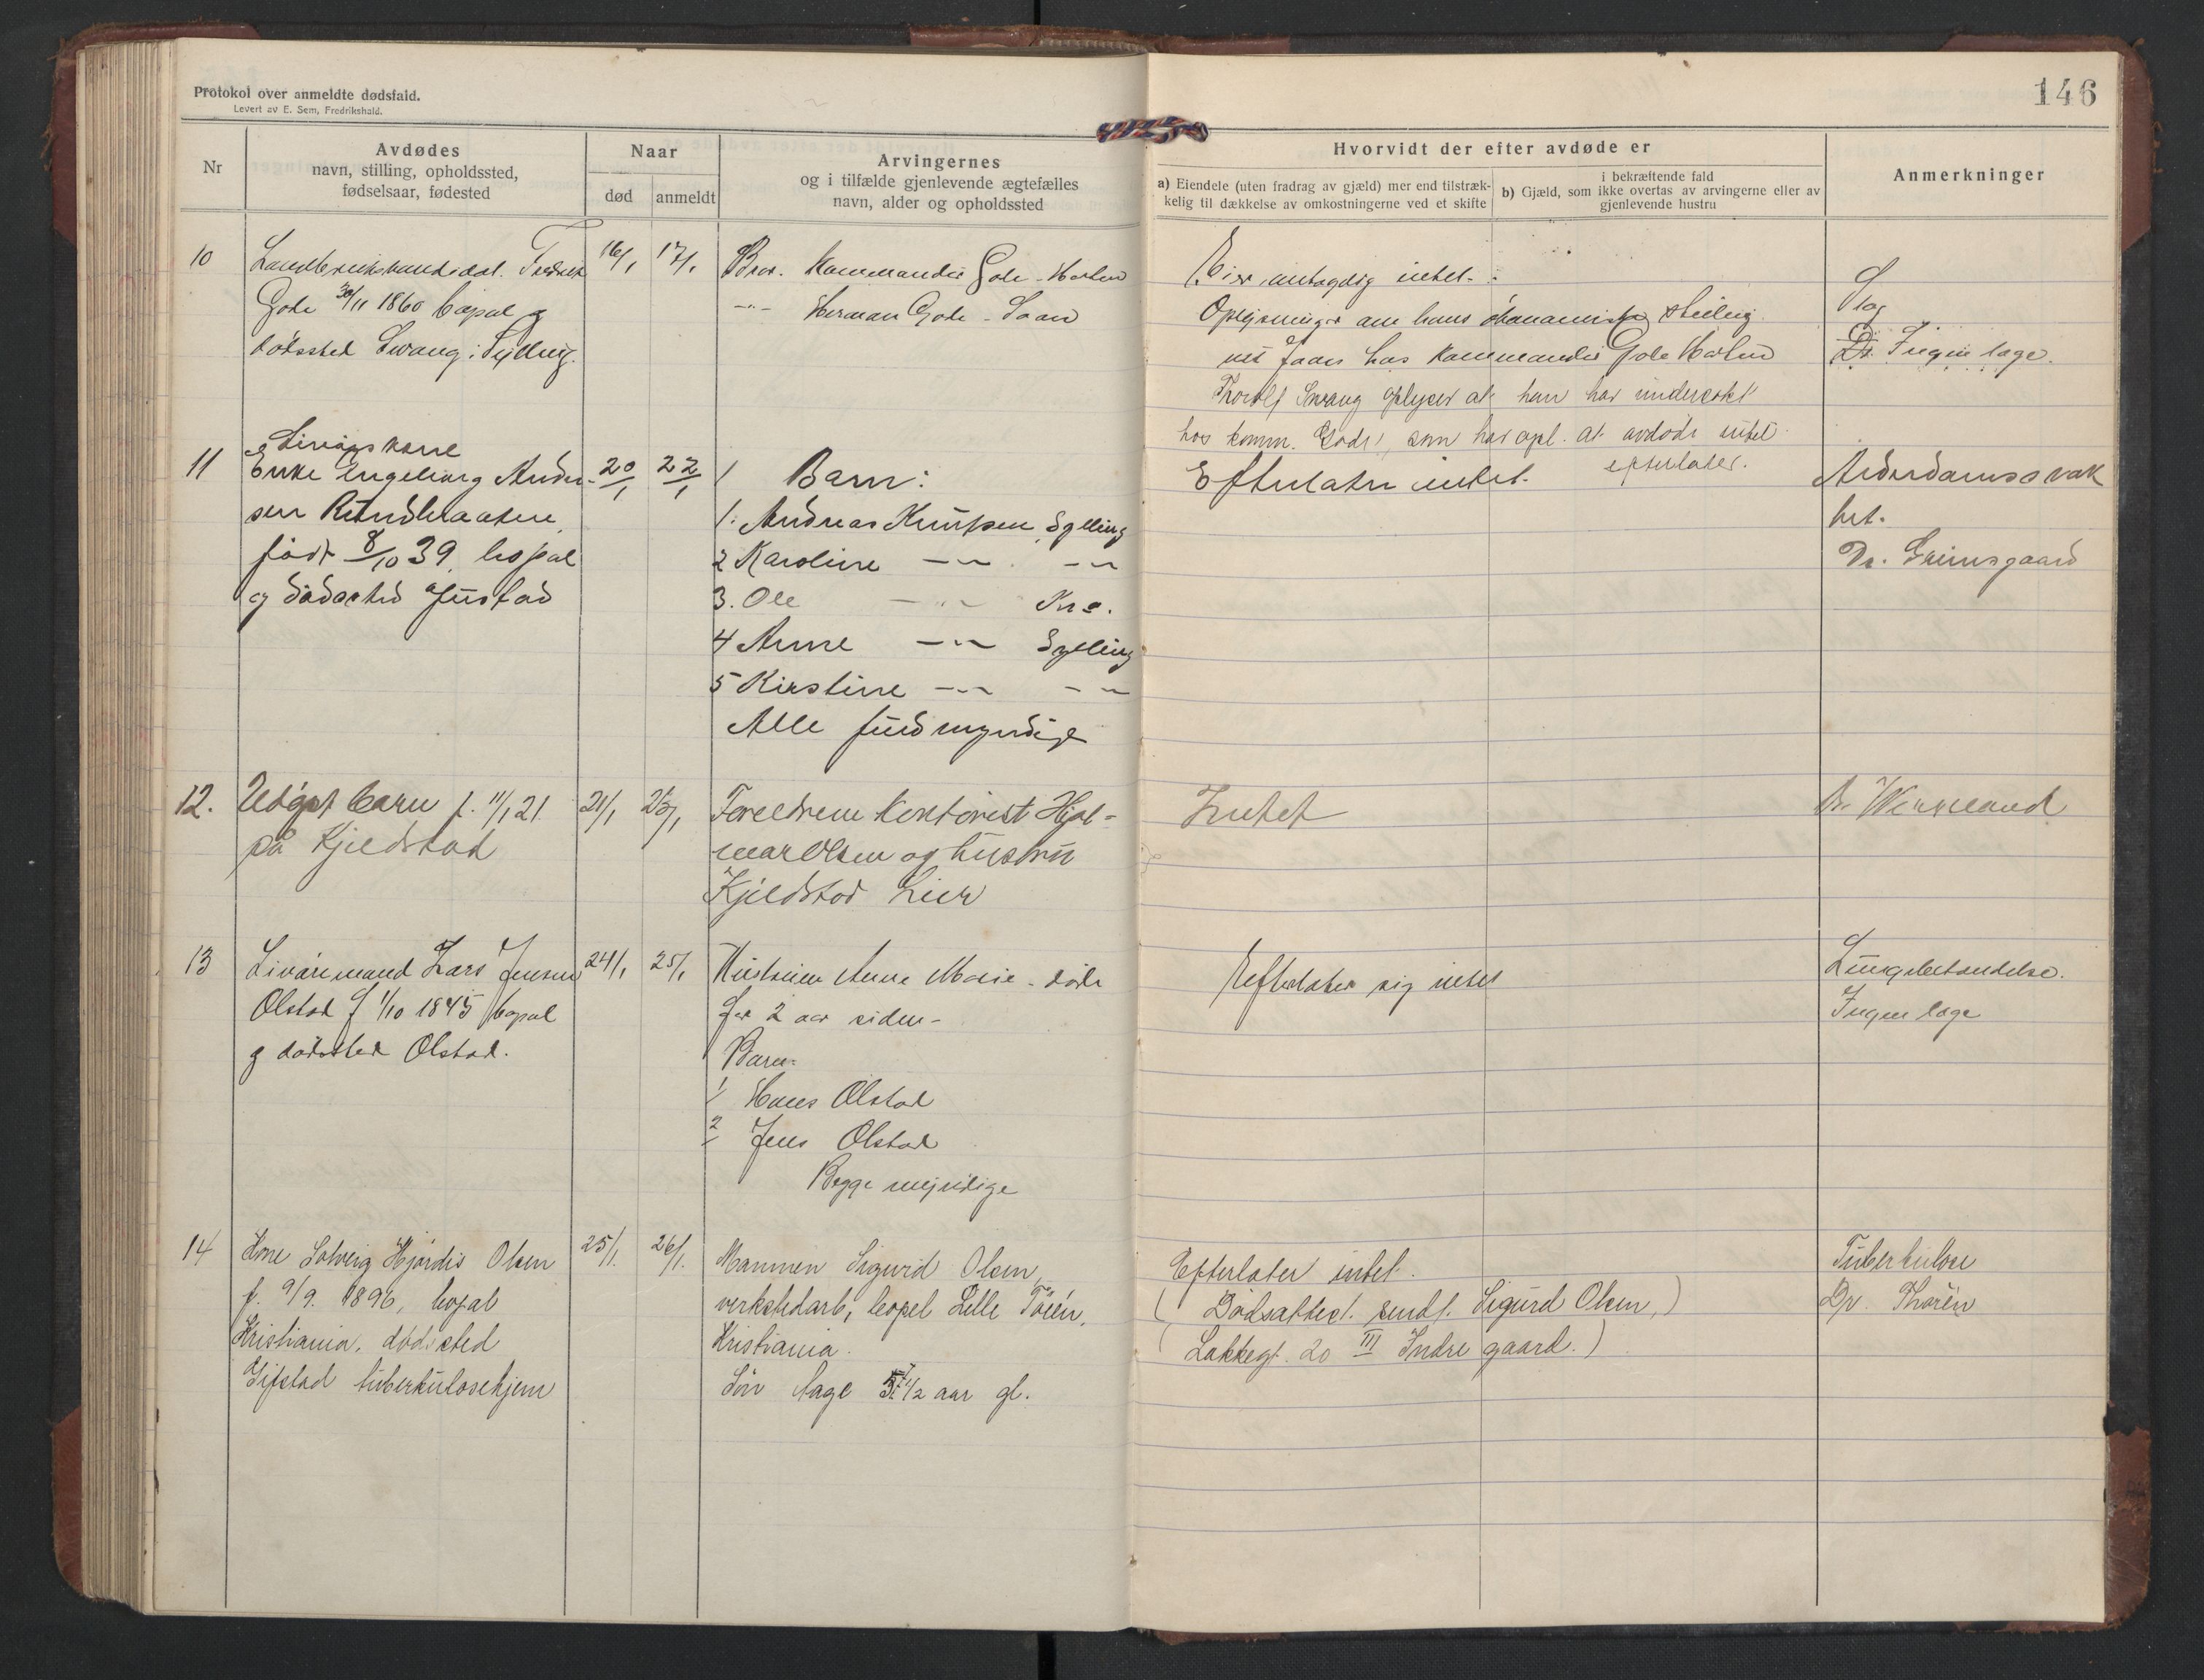 Protokol over anmeldte dødsfald.
Levert av E. Sem, Fredrikshald.
146
Nr
Avdødes
navn, stilling, opholdssted,
fødselsaar, fødested
Naar
død
anmeldt
Arvingernes
og i tilfælde gjenlevende ægtefælles
navn, alder og opholdssted
Hvorvidt der efter avdøde er
a) Eiendele (uten fradrag av gjæld) mer end tilstræk-
kelig til dækkelse av omkostningerne ved et skifte
i bekræftende fald
b) Gjæld, som ikke overtas av arvingerne eller av
gjenlevende hustru
Anmerkninger
10
Landbrukskandidat. Fredrik
Gode 30/11 1860 bopæl og
dødssted Svang i Sylling.
16/1
17/1
Bror. Kommandør Gode - Horten
-"- Herman Gode -
Eier intet.
Oplysninger om hans økonomiske stilling
ved faaes hos Kommandør Gode Horten
Thorolf Svang oplyser at han har undersøkt
hos komm. Gode, som har opl. at avdøde intet
efterlater.
Slag
Dr. Ingen læge.
11
Livøgskone
Enke Engeborg Ander-
sen
født 8/10 39, bopæl
og dødssted Justad
20/1
22/1
Barn:
1. Andreas Knutsen, Sylling
2 Karoline -"- -"-
3. Ole -"- Kra.
4 Anne -"- Sylling
5 Kirstine -"- -"-
Alle fuldmyndige
Efterlater intet.
Alderdomssvak
het.
Dr. Grimsgaard
12.
Udøpt barn f. 11/1 21
på Kjeldstad
21/1
23/1
Foreldrene Kontorist Hjal-
mar Olsen og hustru
Kjeldstad Lier
Intet
Dr Werreland
13
Livøremand Lars Jensen
Olstad f 1/10 1845 bopæl
og dødssted Olstad.
24/1
25/1
Hustruen Anne Marie - døde
for 2 aar siden -
Barn:
1 Hans Olstad
2 Jens Olstad
Begge myndige
Efterlater sig intet
Lungebetændelse.
Ingen læge
14
Kone Solveig Hjørdis Olsen
f. 9/9. 1896, bopæl
Kristiania, dødssted
Gifstad tuberkulosehjem
25/1.
26/1.
Mannen Sigurd Olsen,
verkstedarb, bopæl Lille Tøien,
Kristiania.
Søn Aage 1/2 aar gl.
Efterlater intet.
( Dødsattest. sendt. Sigurd Olsen, )
( Lakkegt. 20 III Indre gaard. )
Tuberkulose
Dr. Thorèn